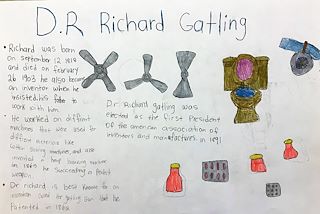 D.R Richard Gatling
• Richard was born
on september 12 1818
and died on february
26 1903 he also became
an inventor when he
insisted his
to
work with him
He worked on diffrint
machines that were used for
diffrent materials like
cotton sowing machines, and also
invented a hemp breaking machine
in the succeeding a potent
weapon.
• Dr richard is best known for an
common used or gatling gun that he
Patented in 1862
Dr. Richard gatling was
elected as the first President
of the american association of
inventors and manufactures in 1891